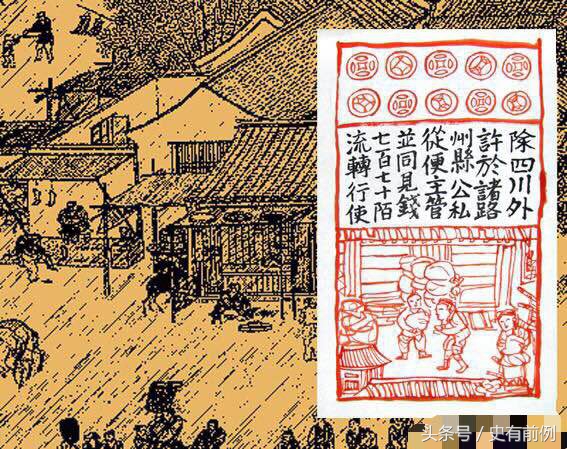 除四川外
許於諸路
州縣公私
從便主管
並同見錢
七百七十陌
流轉行使
头条号 / 史有前例